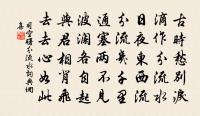 古時愁別淚
滴作分流水
日夜東西流
分流幾千里
通塞兩不見
波瀾各自起
與君相背飛
去去心如此
司空曙分流水詞典網